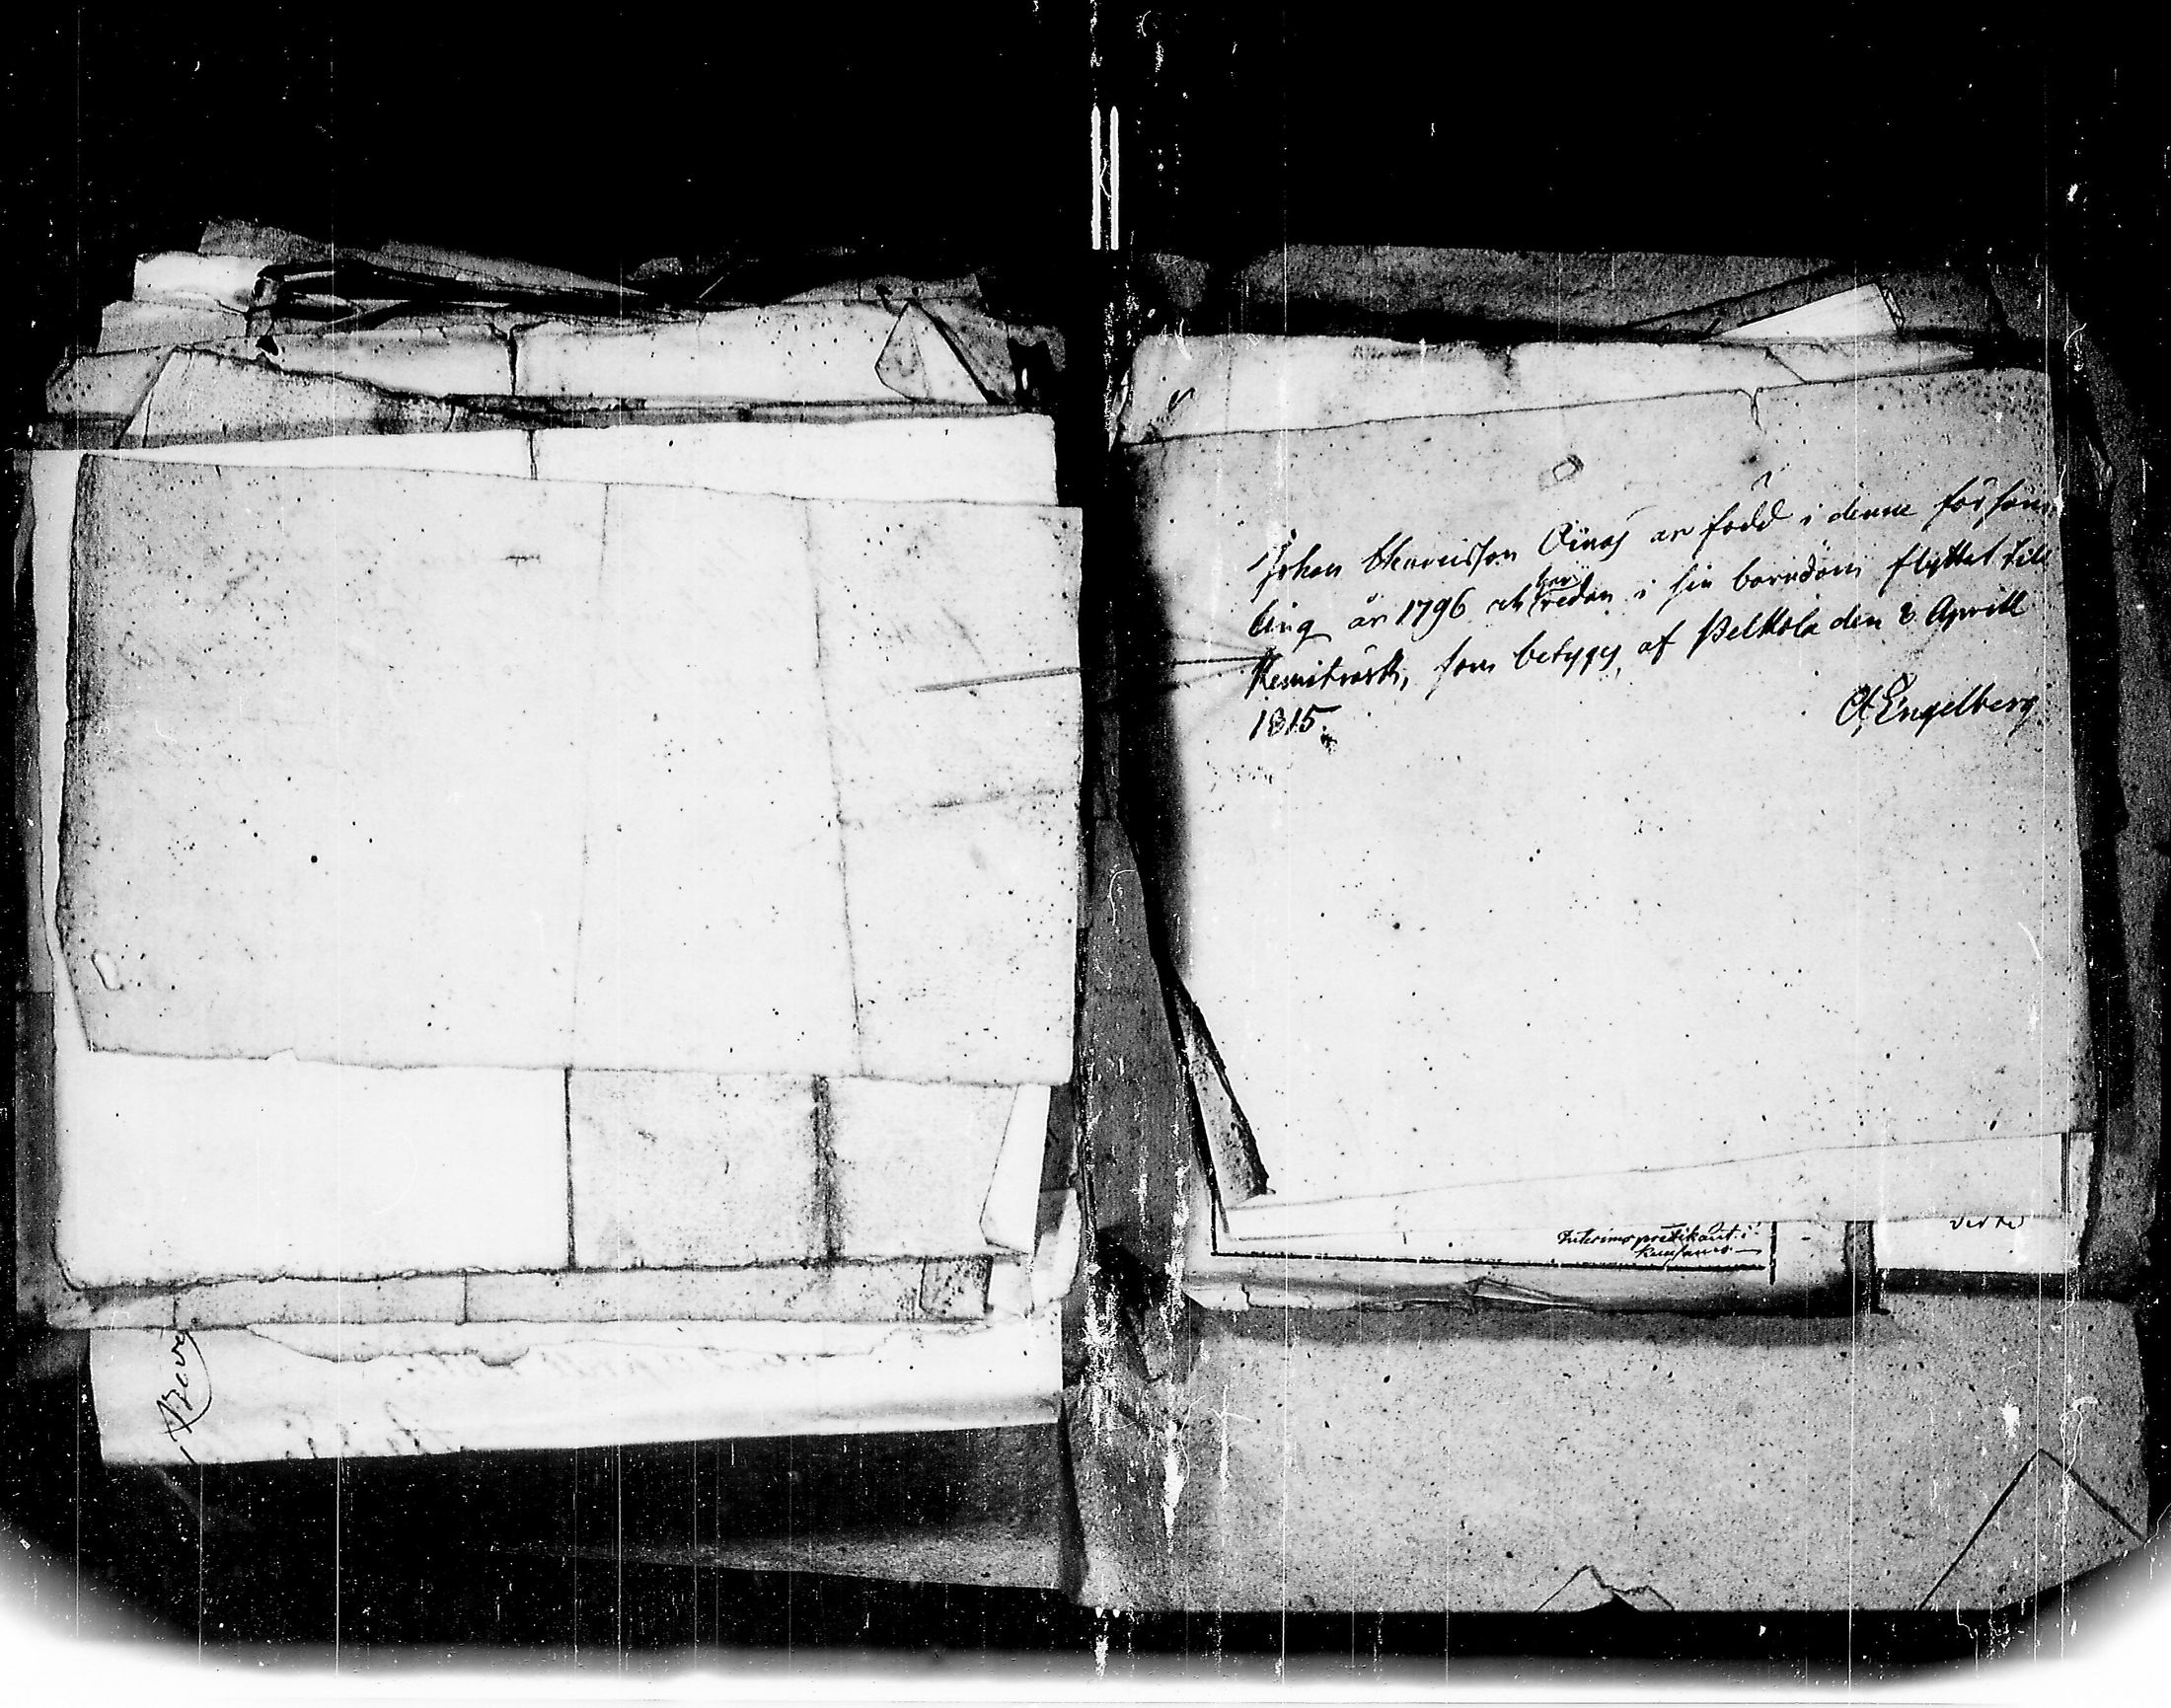 Johan Henricsson Oinas är född i denne försam-
ling år 1796 och har redan i sin barndom flyttat till
Kemiträsk, som betyges, af Pelkola den 8 Aprill
1815.
Engelberg
Interims predikant i